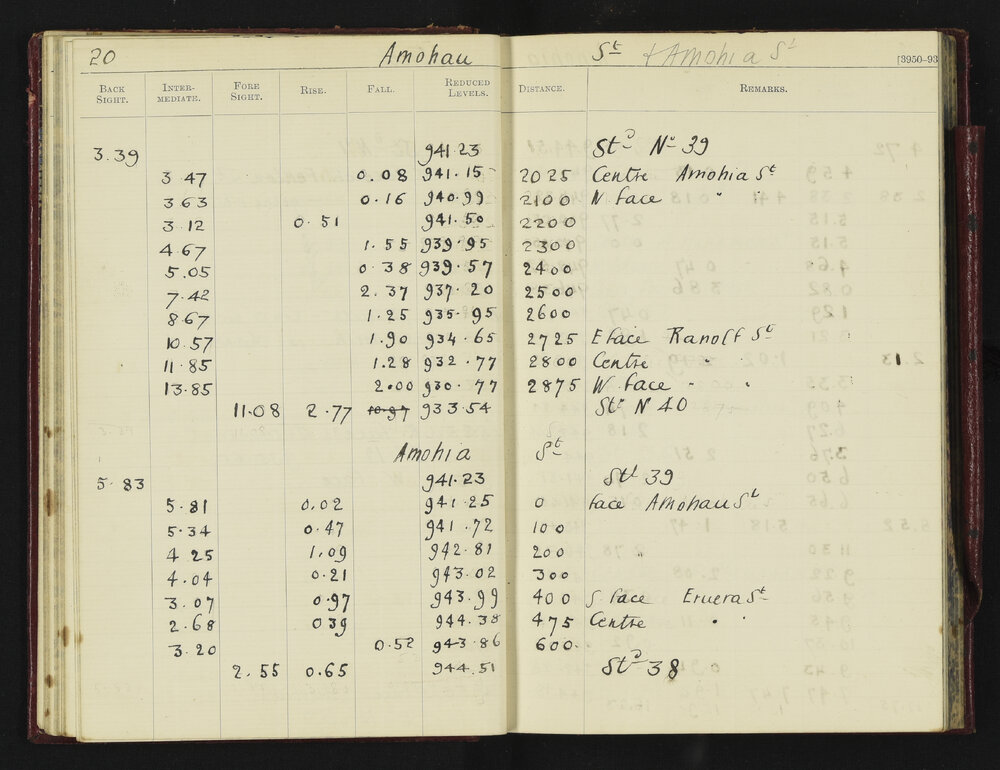 20 Amohau St & Amohia St [3950-93
BACK SIGHT. INTER-MEDIATE. FORE SIGHT. RISE. FALL. REDUCED LEVELS. DISTANCE. REMARKS.
3.39 941.23 Std No 39
3.47 0.08 941.15 2025 Centre Amohia St
3.63 0.16 940.99 2100 W face "
3.12 0.51 941.50 2200
4.67 1.55 939.95 2300
5.05 0.38 939.57 2400
7.42 2.37 937.20 2500
8.67 1.25 935.95 2600
10.57 1.90 934.65 2725 E face Ranolf St
11.85 1.28 932.77 2800 Centre " "
13.85 2.00 930.77 2875 W face " "
11.08 2.77 933.54 Std No 40
Amohia St
5.83 941.23 Std 39
5.81 0.02 941.25 0 face Amohau St
5.34 0.47 941.72 100
4.25 1.09 942.81 200 "
4.04 0.21 943.02 300
3.07 0.97 943.99 400 S. face Eruera St
2.68 039 944.38 475 Centre " "
3.20 0.52 943.86 600
2.55 0.65 944.51 Std 38